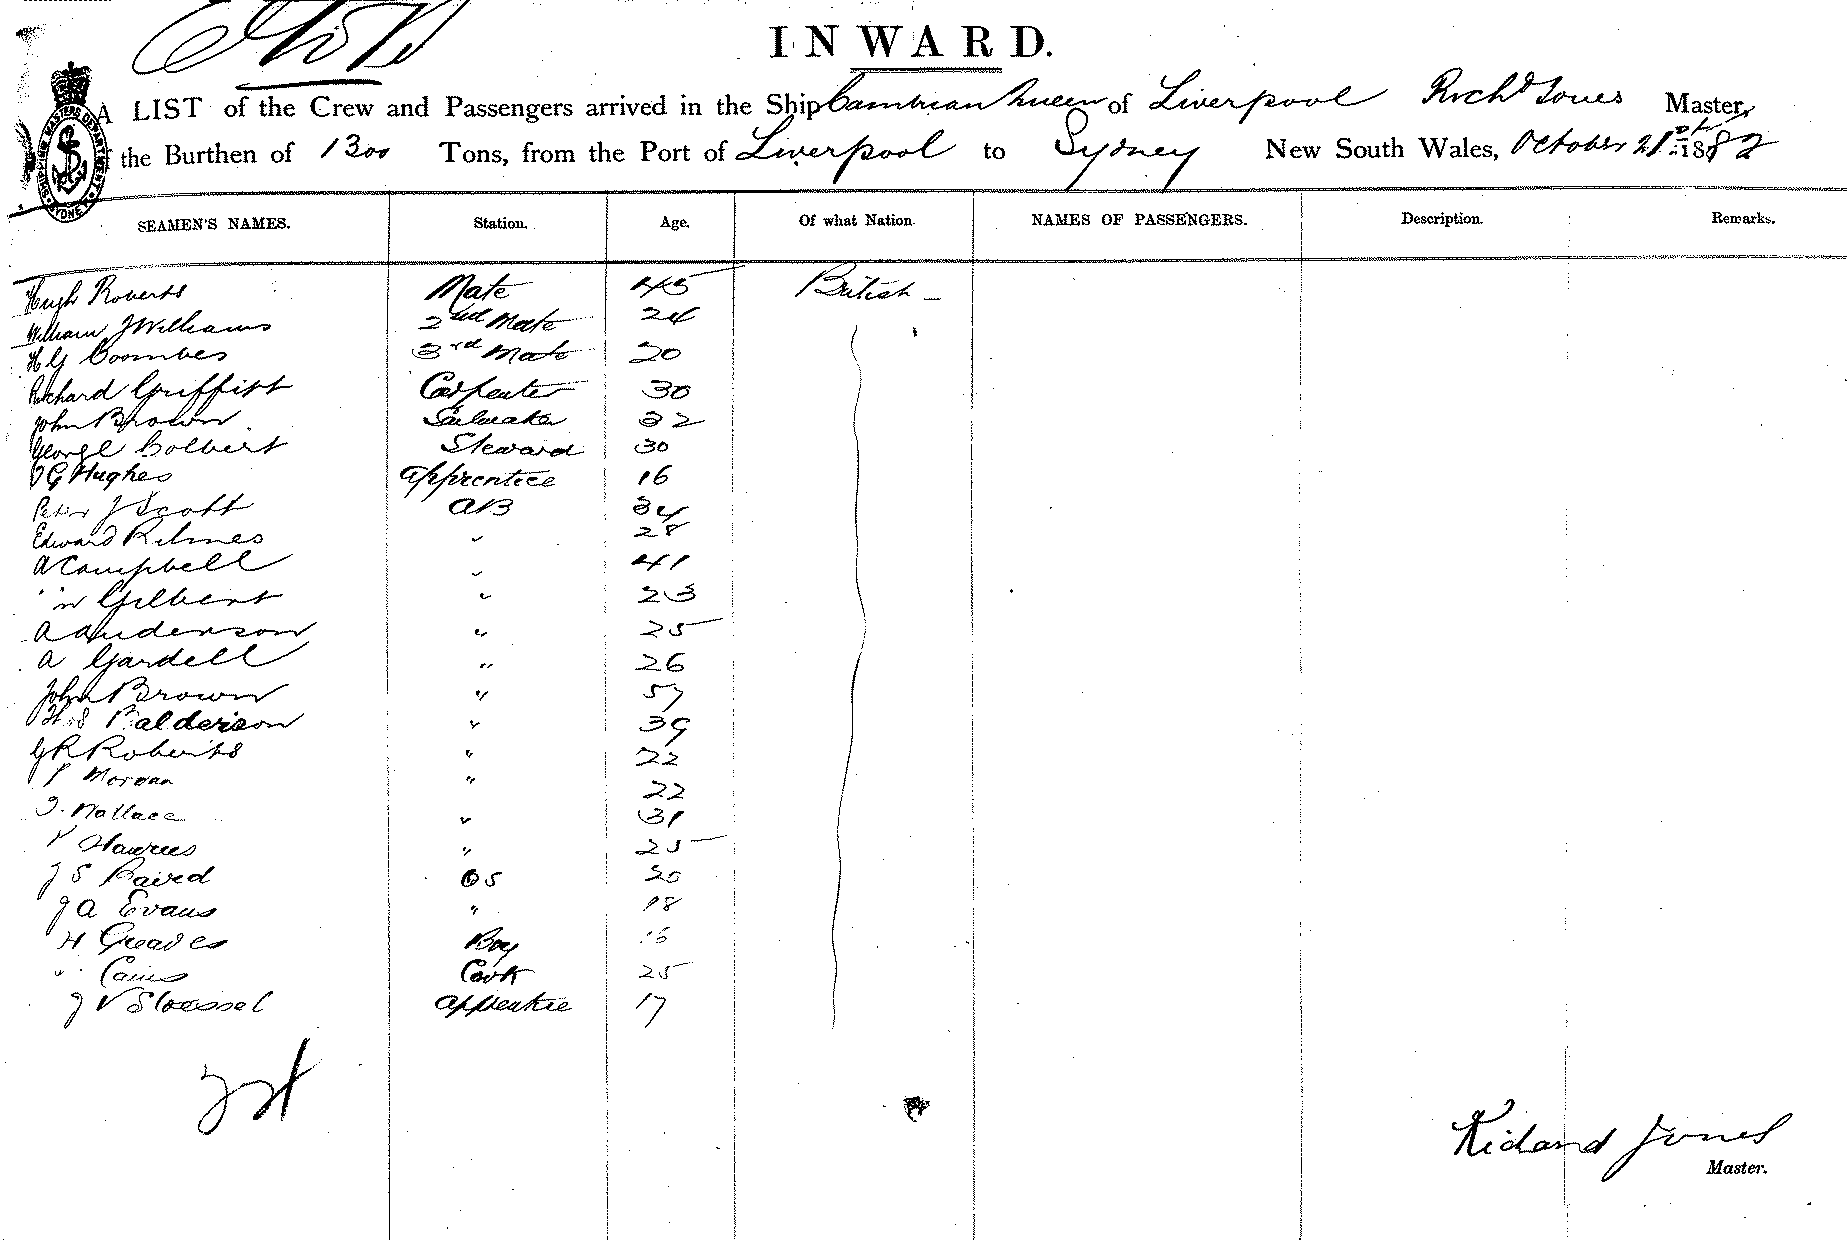 INWARD.
A LIST of the Crew and Passengers arrived in the Ship Cambrian Queen of Liverpool Rich<sup>d</sup> Jones Master,
the Burthen of 1300 Tons, from the Port of Liverpool to Sydney New South Wales, October 21st 1882
SEAMEN'S NAMES. Station. Age. Of what Nation NAMES OF PASSENGERS. Description. Remarks.
Hugh Roberts Mate 45 British
William J Williams 2nd Mate 24
H G Coombes 3rd Mate 20
Richard Griffith Carpenter 30
John Brown Sailmaker 32
George Colbert Steward 30
Hughes Apprentice 16
Peter J Scott AB 34
Edward 28
A Campbell 41
W Gilbert " 23
A Anderson " 25
A Gardell " 26
John Brown " 57
Balderson " 39
G R Roberts " 22
Morgan " 22
J. Wallace " 31
" 25
J S Baird OS 20
J A Evans " 18
H Greaves Boy 16
Cains Cook 25
J V Stoessel Apprentice 17
Richard Jones
Master.